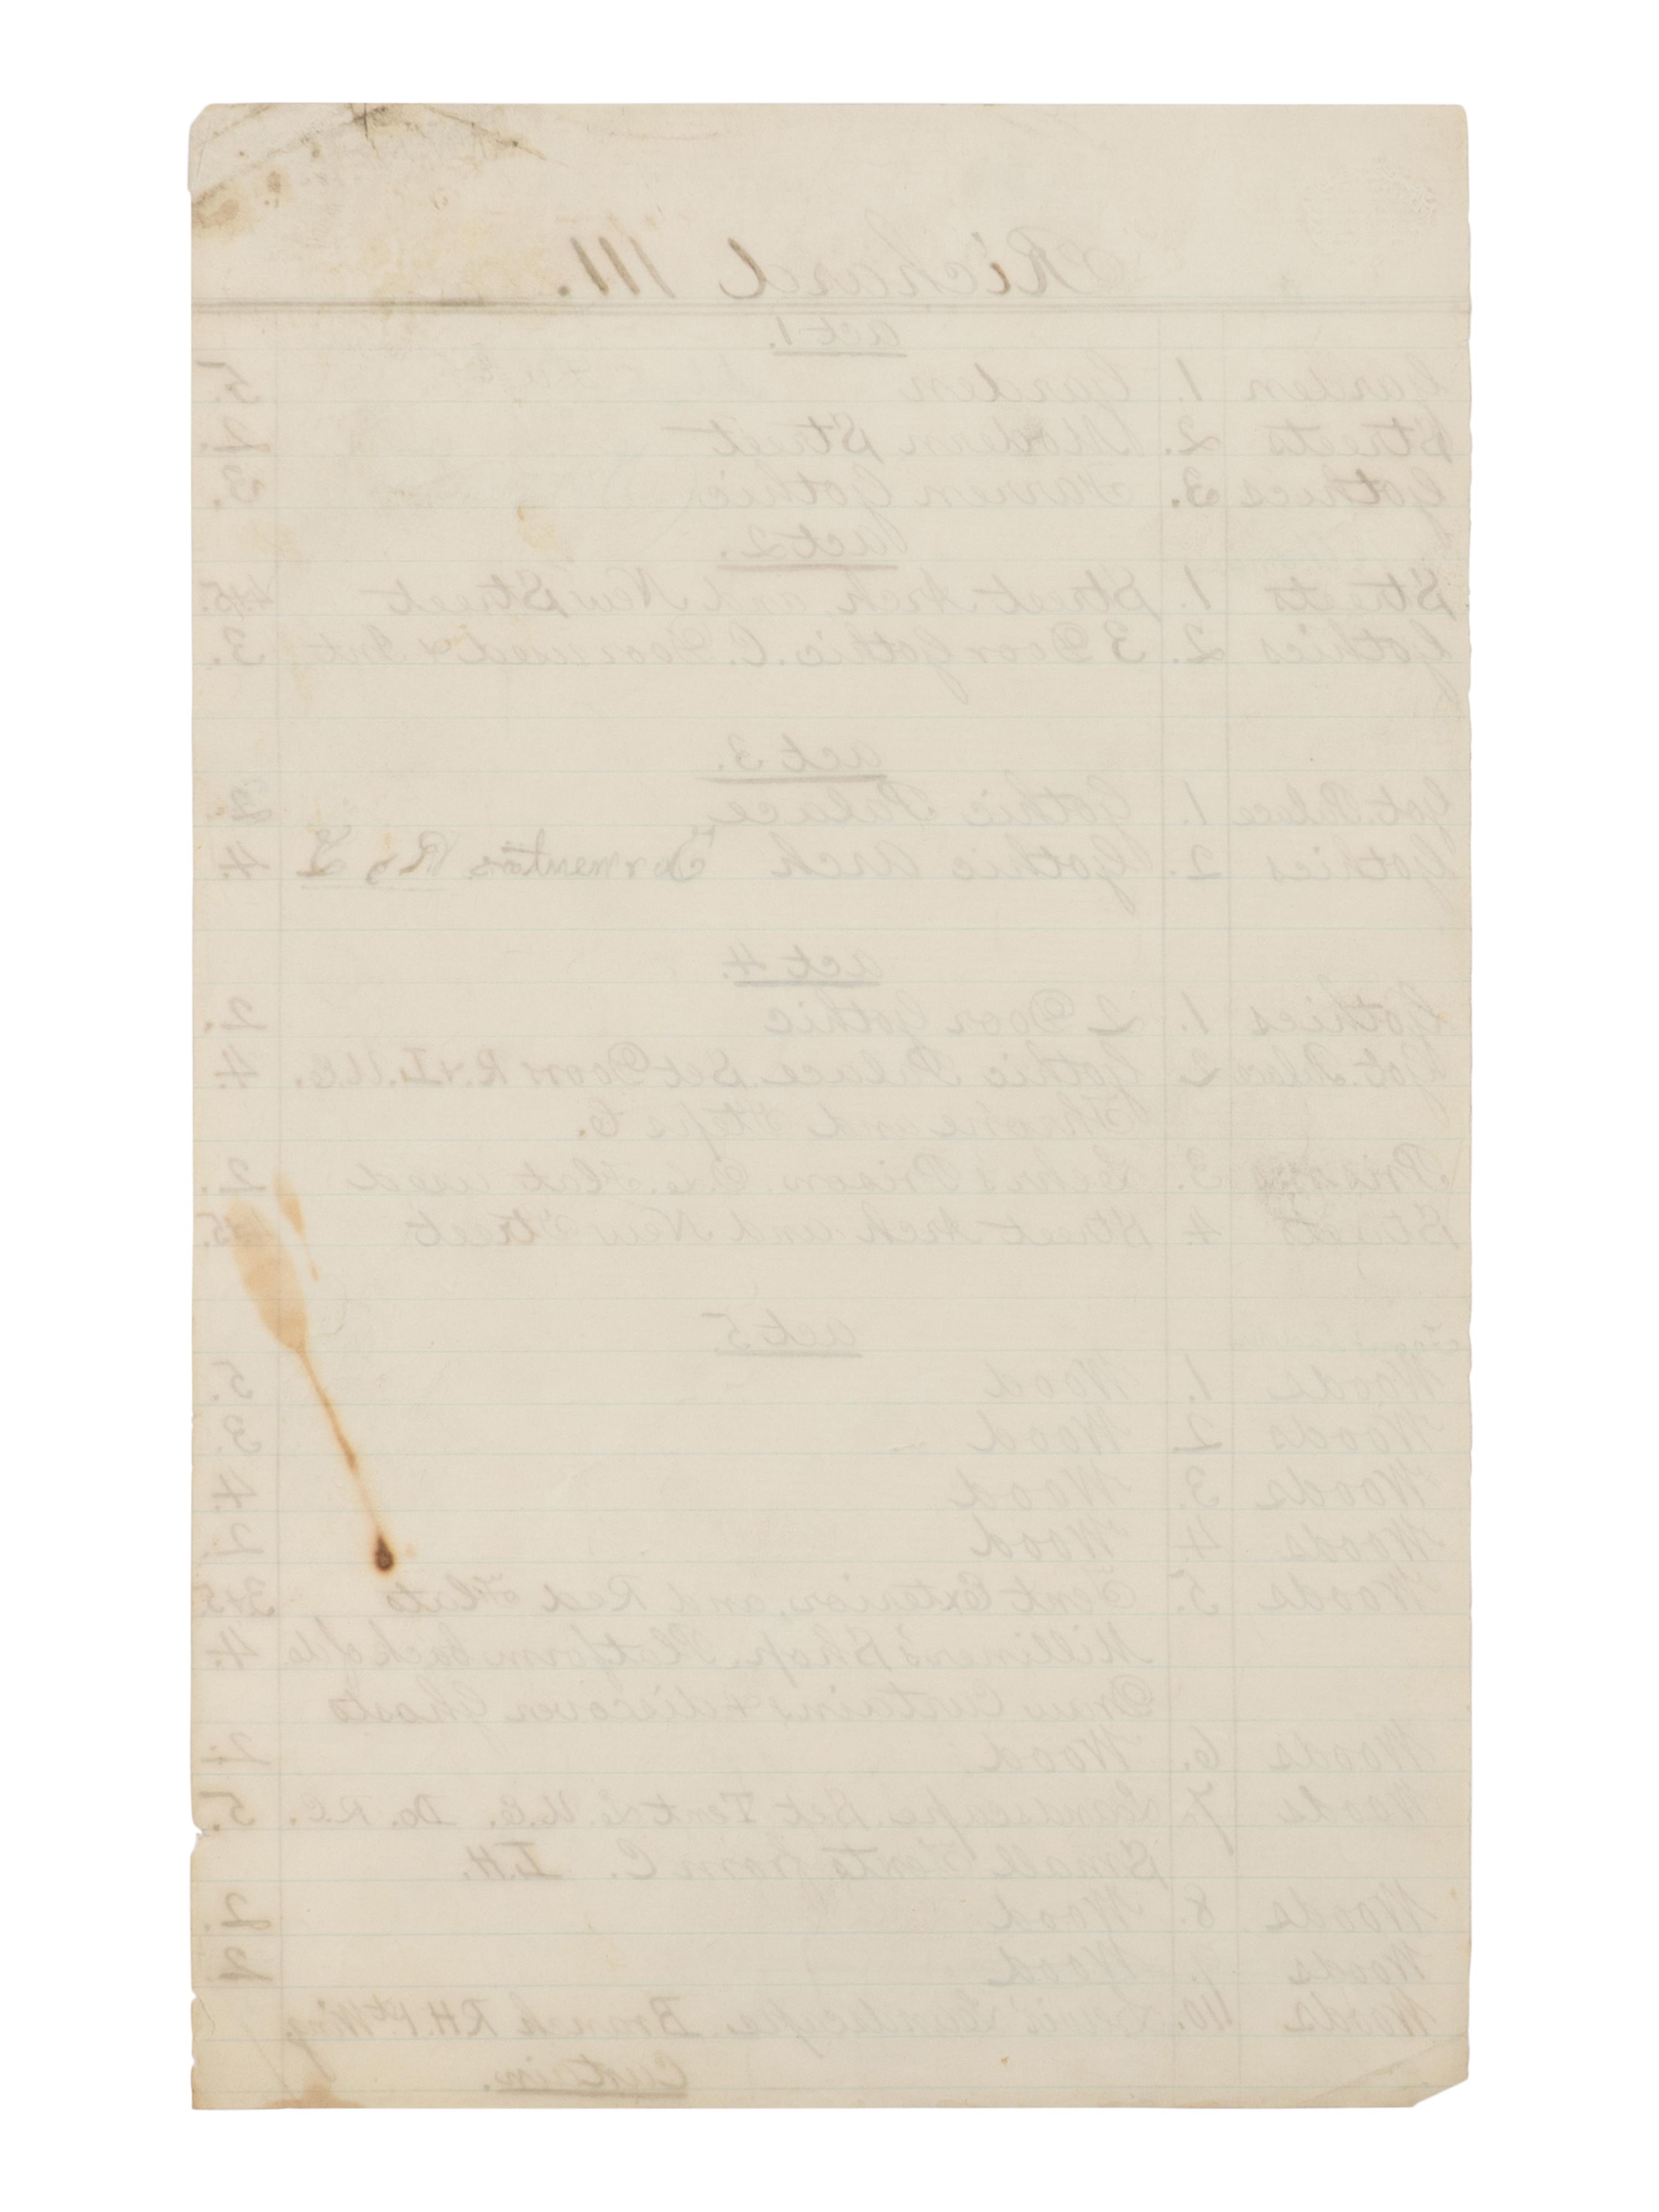 Richard III.
act 1.
Garden 1. Garden 5.
Streets 2. Modern Street 2.
Gothics 3. Gothic 3.
act 2.
Streets 1. Street Arch and New Street 4&5.
Gothics 2. 3 Door Gothic. C. Door used 3.
act 3.
Got. Palace 1. Gothic Palace 2.
Gothics 2. Gothic Arch Tormentors R & L 4.
act 4.
Gothics 1. 2 Door Gothic 2.
Got. Palace 2 Gothic Palace. Set Door R & L. U.E. 4.
Throne and Steps C.
Prisons 3. Prison. One Flat used 2.
Streets 4 Street Arch and New Street 5.
act 5
Woods 1. Wood 5.
Woods 2 Wood 3.
Woods 3. Wood 4.
Woods 4. Wood 2.
Woods 5. Tent Exterior, and Red Flats 3&5.
Milliner's Shop. Platform back of do. 4.
Draw Curtains & discover Ghosts
Woods 6. Wood. 2.
Woods 7. Landscape. Set Tent L. U. E. Do. R.C. 5.
Small Tents from C. L.H.
Woods 8. Wood 2.
Woods 9. Wood 2
Woods 10. Landscape. Branch R.H. 1st Wing
Curtain.